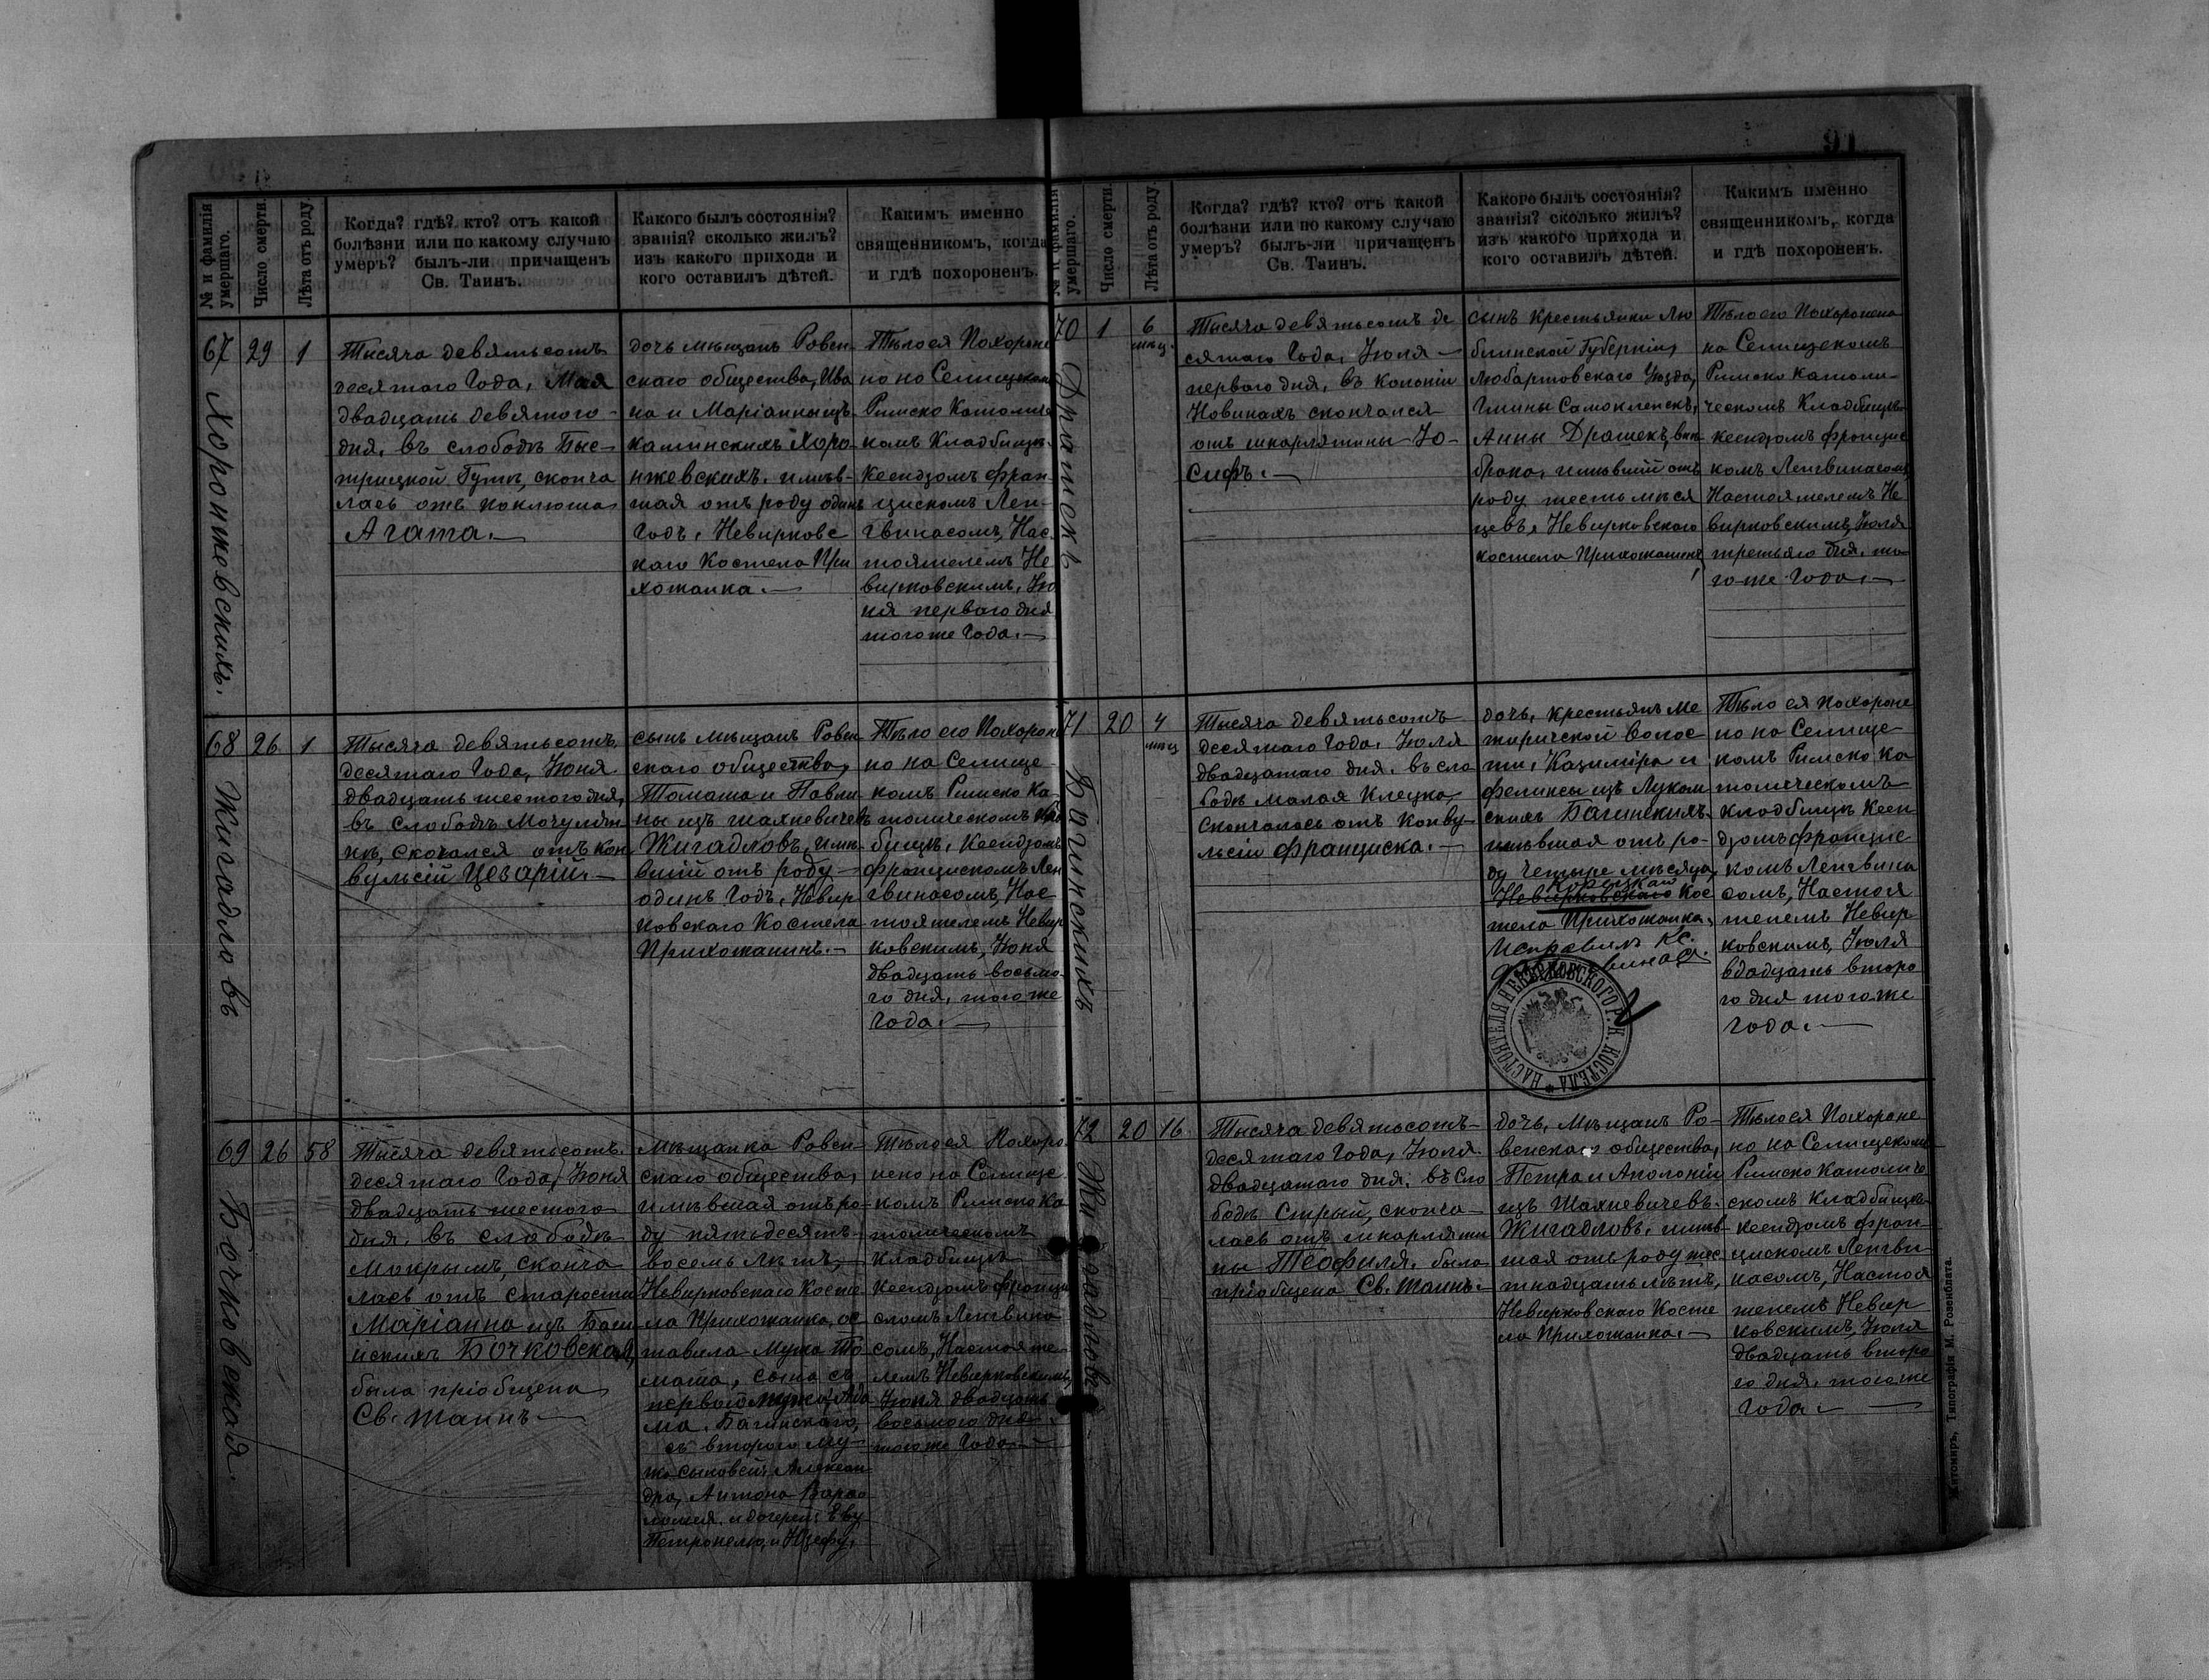 91
№ и фамилія умершаго.
Число смерти.
Лѣта отъ роду.
Когда? гдѣ? кто? отъ какой
болѣзни или по какому случаю
умеръ? былъ-ли причащенъ
Св. Таинъ.
Какого былъ состоянія?
званія? сколько жилъ?
изъ какого прихода и
кого оставилъ дѣтей.
Какимъ именно
священникомъ, когда
и гдѣ похороненъ.
67
Хоронжевскихъ.
29
1
Тысяча девятьсотъ
десятаго Года, Мая
двадцать девятого
дня, въ слободѣ Быс-
трицкой Гутѣ, сконча
лась отъ коклюша
Агата.
дочь мѣщанъ Ровен
скаго общества, Ива
на и Маріанны изъ
Хоро-
нжевскихъ, имѣв-
шая отъ роду одинъ
Годъ, Невирковс
каго Костела При
хожанка.
Тѣло ея Похороне
но на Селищском
Римско Католиче
комъ Кладбищѣ
Ксендзомъ Фран-
цискомъ Лен-
гвинасомъ, Нас
тоятелемъ Не
вирковскимъ, Ію
ня перваго дня
тогоже Года.
68
Жигадловъ
26
1
Тысяча девятьсотъ
десятаго Года, Іюня
двадцать шестого дня,
въ слободѣ Мочулян
кѣ, скочался отъ кон
вульсій Цезарій.
сынъ мѣщанъ Ровен
скаго общества,
Томаша и Павли
ны изъ Шахневичевъ
Жигадловъ, имѣ-
вшій отъ роду
одинъ Годъ, Невир
ковскаго Костела
Прихожанинъ.
Тѣло его Похорон
но на Селище
комъ Римско Ка-
толическомъ Клад
бищѣ, Ксендзомъ
Францискомъ Лен
гвинасомъ, Нас
тоятелемъ Невир
ковскимъ, Іюня
двадцать восьмо-
го дня, тогоже
Года.
69
Бочковская.
26
58
Тысяча девятьсотъ
десятаго Года, Іюня
двадцать шестого
дня, въ слободѣ
Мокрымъ, сконча
лась отъ старости
Маріанна изъ Баги
нскихъ Бочковская,
была пріобщена
Св. Таинъ
Мѣщанка Ровен-
скаго общества,
имѣвшая отъ ро-
ду пятьдесятъ
восемь лѣтъ,
Невирковскаго Косте
ла Прихожанка, ос
тавила Мужа То
маша, сына съ
перваго мужа Ада
ма Багинскаго,
съ второго му-
жа сыновей: Алексан
дра, Антона Варѳо
ломея, и дочерей: Еву
Петронелю, и Юзефу,
Тѣло ея Похоро
нено на Селище
комъ Римско Ка
толическомъ
Кладбищѣ
Ксендзомъ Франци
скомъ Ленгвина
сомъ, Настояте
лемъ Невирковскимъ,
Іюня двадцать
восьмого дня
тогоже Года.
№ и фамилія умершаго.
Число смерти.
Лѣта отъ роду.
Когда? гдѣ? кто? отъ какой
болѣзни или по какому случаю
умеръ? былъ-ли причащенъ
Св. Таинъ.
Какого былъ состоянія?
званія? сколько жилъ?
изъ какого прихода и
кого оставилъ дѣтей.
Какимъ именно
священникомъ, когда
и гдѣ похороненъ.
70
Драшекъ
1
6
мѣц.
Тысяча девятьсотъ де
сятаго Года, Іюля
перваго дня, въ колоніи
Новинахъ скончался
отъ шкарлятины Іо-
сифъ.
сынъ крестьянки Лю
блинской Губерніи,
Любартовскаго Уѣзда,
Гмины Самоклескъ,
Анны Драшекъ, внѣ
брака, имѣвшій отъ
роду шесть мѣся
цевъ, Невирковскаго
костела Прихожанинъ
Тѣло его Похоронено
на Селищскомъ
Римско Католи-
ческомъ Кладбищѣ
Ксендзомъ Францис
комъ Ленгвинасомъ,
Настоятелемъ Не
вирковскимъ, Іюля
третьяго дня, то
гоже Года.
71
Багинскихъ
20
4
мѣц
Тысяча девятьсотъ
десятаго Года, Іюля
двадцатаго дня, въ сло
бодѣ Малая Клецка,
скончалось отъ Конву
льсіи Франциска.
дочь, крестьянъ Ме
жиричской волос
ти, Казиміра и
Феликсы изъ Луком
скихъ Багинскихъ,
имѣвшая отъ ро-
ду четыре мѣсяца,
Корецкаго
Невирковскаго Кос
тела Прихожанка.
Исправилъ Кс.
НАСТОЯТЕЛЯ НЕВѢРКОВСКОГО Р. К. КОСТЕЛА
Тѣло ея Похороне
но на Селище
комъ Римско Ка
толическомъ
Кладбищѣ Ксен
дзомъ Францис
комъ Ленгвина
сомъ, Настоя
телемъ Невир
ковскимъ, Іюля
вдадцать второ
го дня тогоже
Года.
72
Жигадловъ
20
16
Тысяча девятьсотъ
десятаго Года, Іюля
двадцатаго дня, въ Сло
бодѣ Стрый, сконча
лась отъ шкарляти
ны Теофиля, была
пріобщена Св. Таинъ.
дочь, Мѣщанъ Ро-
венскаго общества,
Петра и Аполоніи
изъ Шахневичевъ
Жигадловъ, имѣв
шая отъ роду шес
тнадцать лѣтъ,
Невирковскаго Косте
ла Прихожанка.
Тѣло ея Похороне
но на Селищском
Римско Католиче
скомъ Кладбищѣ
Ксендзомъ Фран-
цискомъ Ленгви
насомъ, Настоя
телемъ Невир
ковскимъ, Іюля
двадцать второ
го дня, тогоже
Года.
Житомиръ, Типографія М. Розенблата.